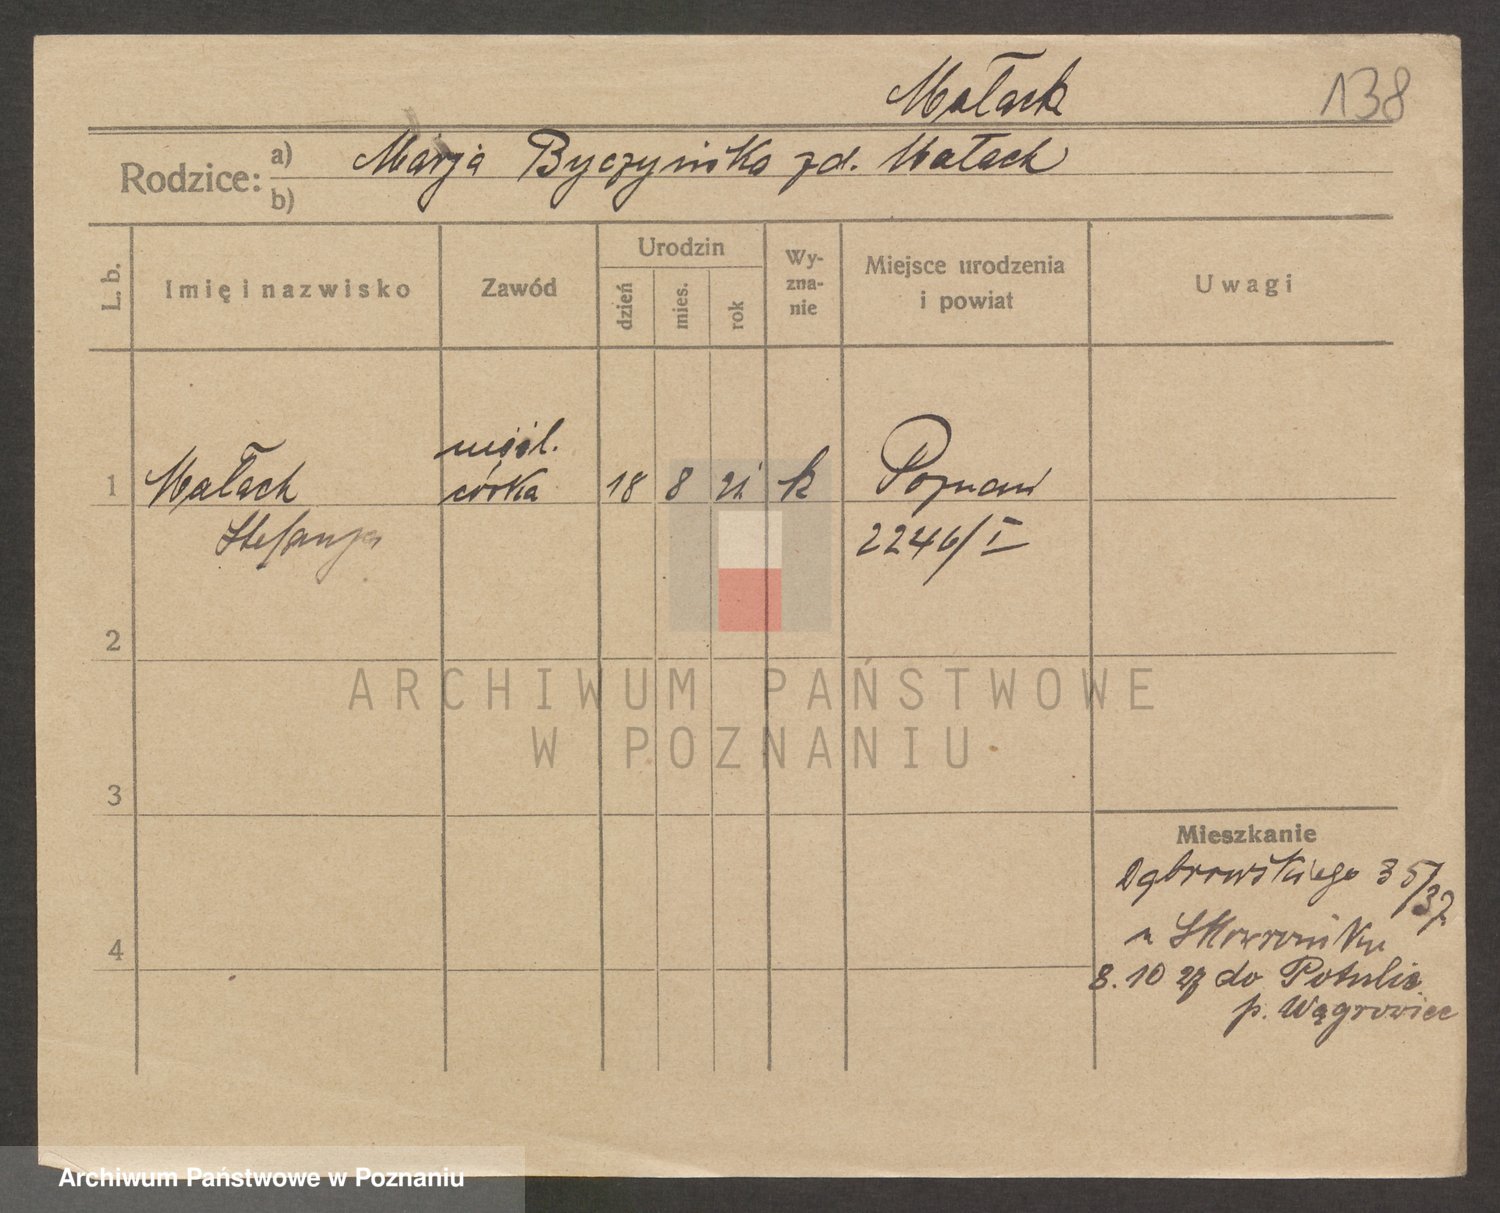 Małach
138
Rodzice:
a) Marja Byczyńska zd. Małach
b)
L. b.
Imię i nazwisko
Zawód
Urodzin
dzień
mies.
rok
Wy-
zna-
nie
Miejsce urodzenia
i powiat
Uwagi
1
Małach
Stefanja
córka
18 8 21 k
Poznań
2246/I
2
ARCHIWUM PAŃSTWOWE
W POZNANIU
3
Mieszkanie
Dąbrowskiego 35/37
4
8. 10 27 do Potulic
p. Wągrowiec
Archiwum Państwowe w Poznaniu